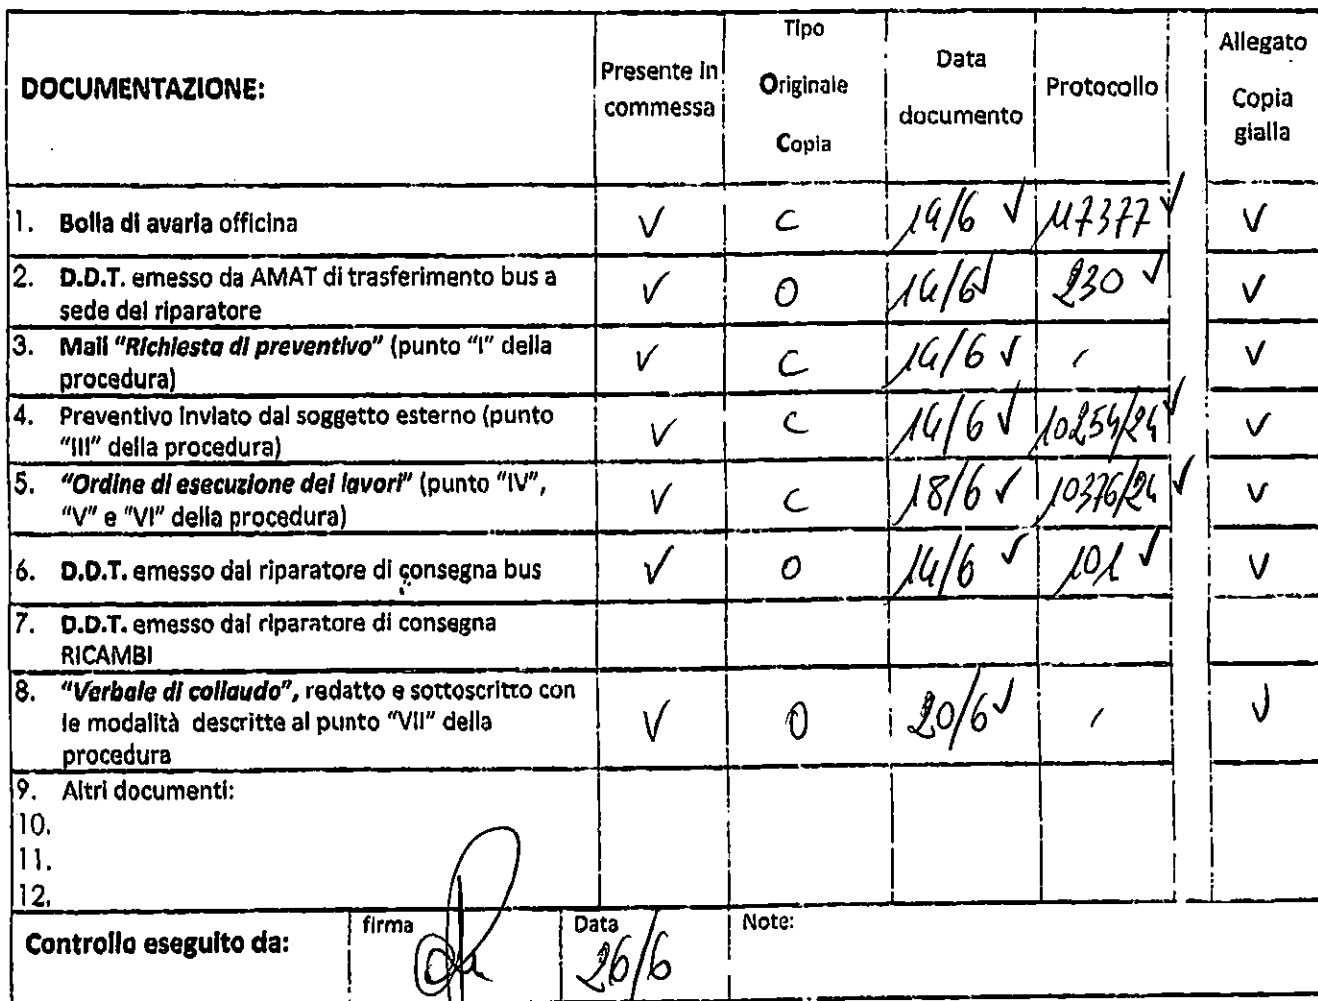 DOCUMENTAZIONE:
Presente in
commessa
Tipo
Originale
Copia
Data
documento
Protocollo
Allegato
Copia
gialla
1. Bolla di avaria officina V C 14/6 ✓ 117377 ✓ V
2. D.D.T. emesso da AMAT di trasferimento bus a
sede del riparatore V O 14/6 ✓ 230 ✓ V
3. Mail "Richiesta di preventivo" (punto "I" della
procedura) V C 14/6 ✓ / V
4. Preventivo inviato dal soggetto esterno (punto
"III" della procedura) V C 14/6 ✓ 10254/24 ✓ V
5. "Ordine di esecuzione dei lavori" (punto "IV",
"V" e "VI" della procedura) V C 18/6 ✓ 10376/24 ✓ V
6. D.D.T. emesso dal riparatore di consegna bus V O 14/6 ✓ 101 ✓ V
7. D.D.T. emesso dal riparatore di consegna
RICAMBI
8. "Verbale di collaudo", redatto e sottoscritto con
le modalità descritte al punto "VII" della
procedura V O 20/6 ✓ / V
9. Altri documenti:
10.
11.
12.
Controllo eseguito da:
firma
Data
26/6
Note: